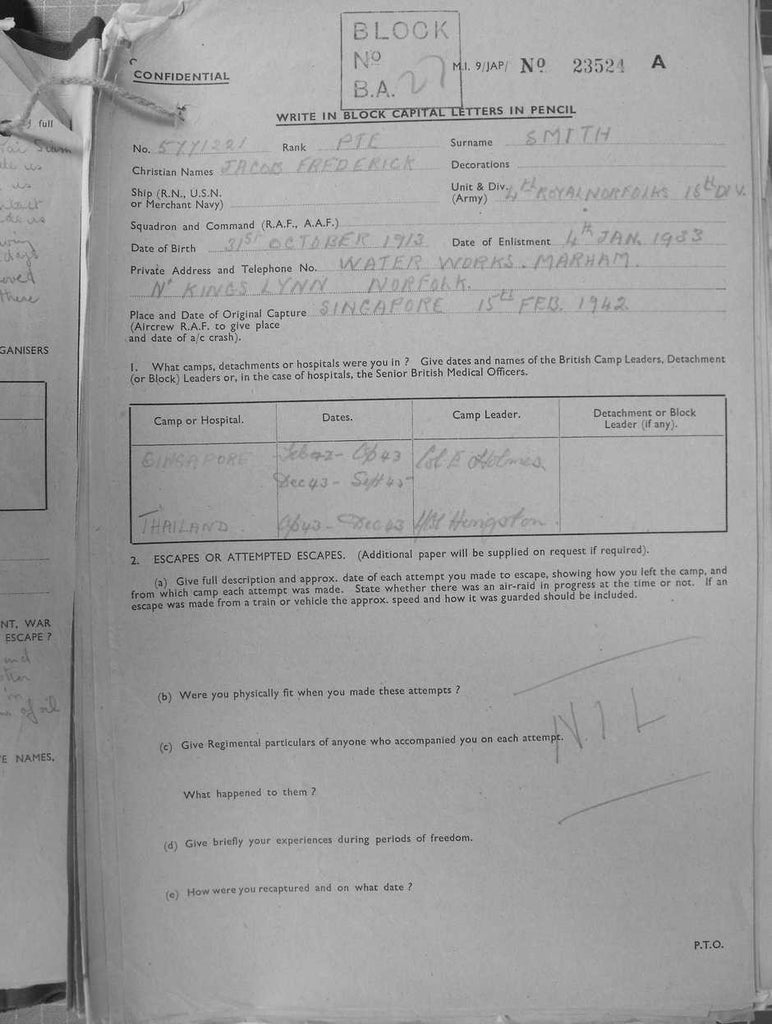 BLOCK
No
B.A. 27
CONFIDENTIAL
M.I. 9/JAP/ No 23524 A
WRITE IN BLOCK CAPITAL LETTERS IN PENCIL
No. Rank PTE Surname SMITH
Christian Names JACOB FREDERICK Decorations
Ship (R.N., U.S.N.
or Merchant Navy)
Unit & Div.
(Army) 4th ROYAL NORFOLKS 18th DIV.
Squadron and Command (R.A.F., A.A.F.)
Date of Birth 31ST OCTOBER 1913 Date of Enlistment 4th JAN. 1933
Private Address and Telephone No. WATER WORKS. MARHAM.
Nr KINGS LYNN NORFOLK.
Place and Date of Original Capture SINGAPORE 15th FEB. 1942
(Aircrew R.A.F. to give place
and date of a/c crash).
1. What camps, detachments or hospitals were you in ? Give dates and names of the British Camp Leaders, Detachment
(or Block) Leaders or, in the case of hospitals, the Senior British Medical Officers.
Camp or Hospital. Dates. Camp Leader. Detachment or Block
Leader (if any).
SINGAPORE Feb 42 - Ap 43 Col E Holmes
Dec 43 - Sept 45
THAILAND. Ap 43 - Dec 43 Hingston.
2. ESCAPES OR ATTEMPTED ESCAPES. (Additional paper will be supplied on request if required).
(a) Give full description and approx. date of each attempt you made to escape, showing how you left the camp, and
from which camp each attempt was made. State whether there was an air-raid in progress at the time or not. If an
escape was made from a train or vehicle the approx. speed and how it was guarded should be included.
(b) Were you physically fit when you made these attempts ?
N.I.L
(c) Give Regimental particulars of anyone who accompanied you on each attempt.
What happened to them ?
(d) Give briefly your experiences during periods of freedom.
(e) How were you recaptured and on what date ?
P.T.O.
full
GANISERS
NT, WAR
ESCAPE ?
and
in
of oil
E NAMES,